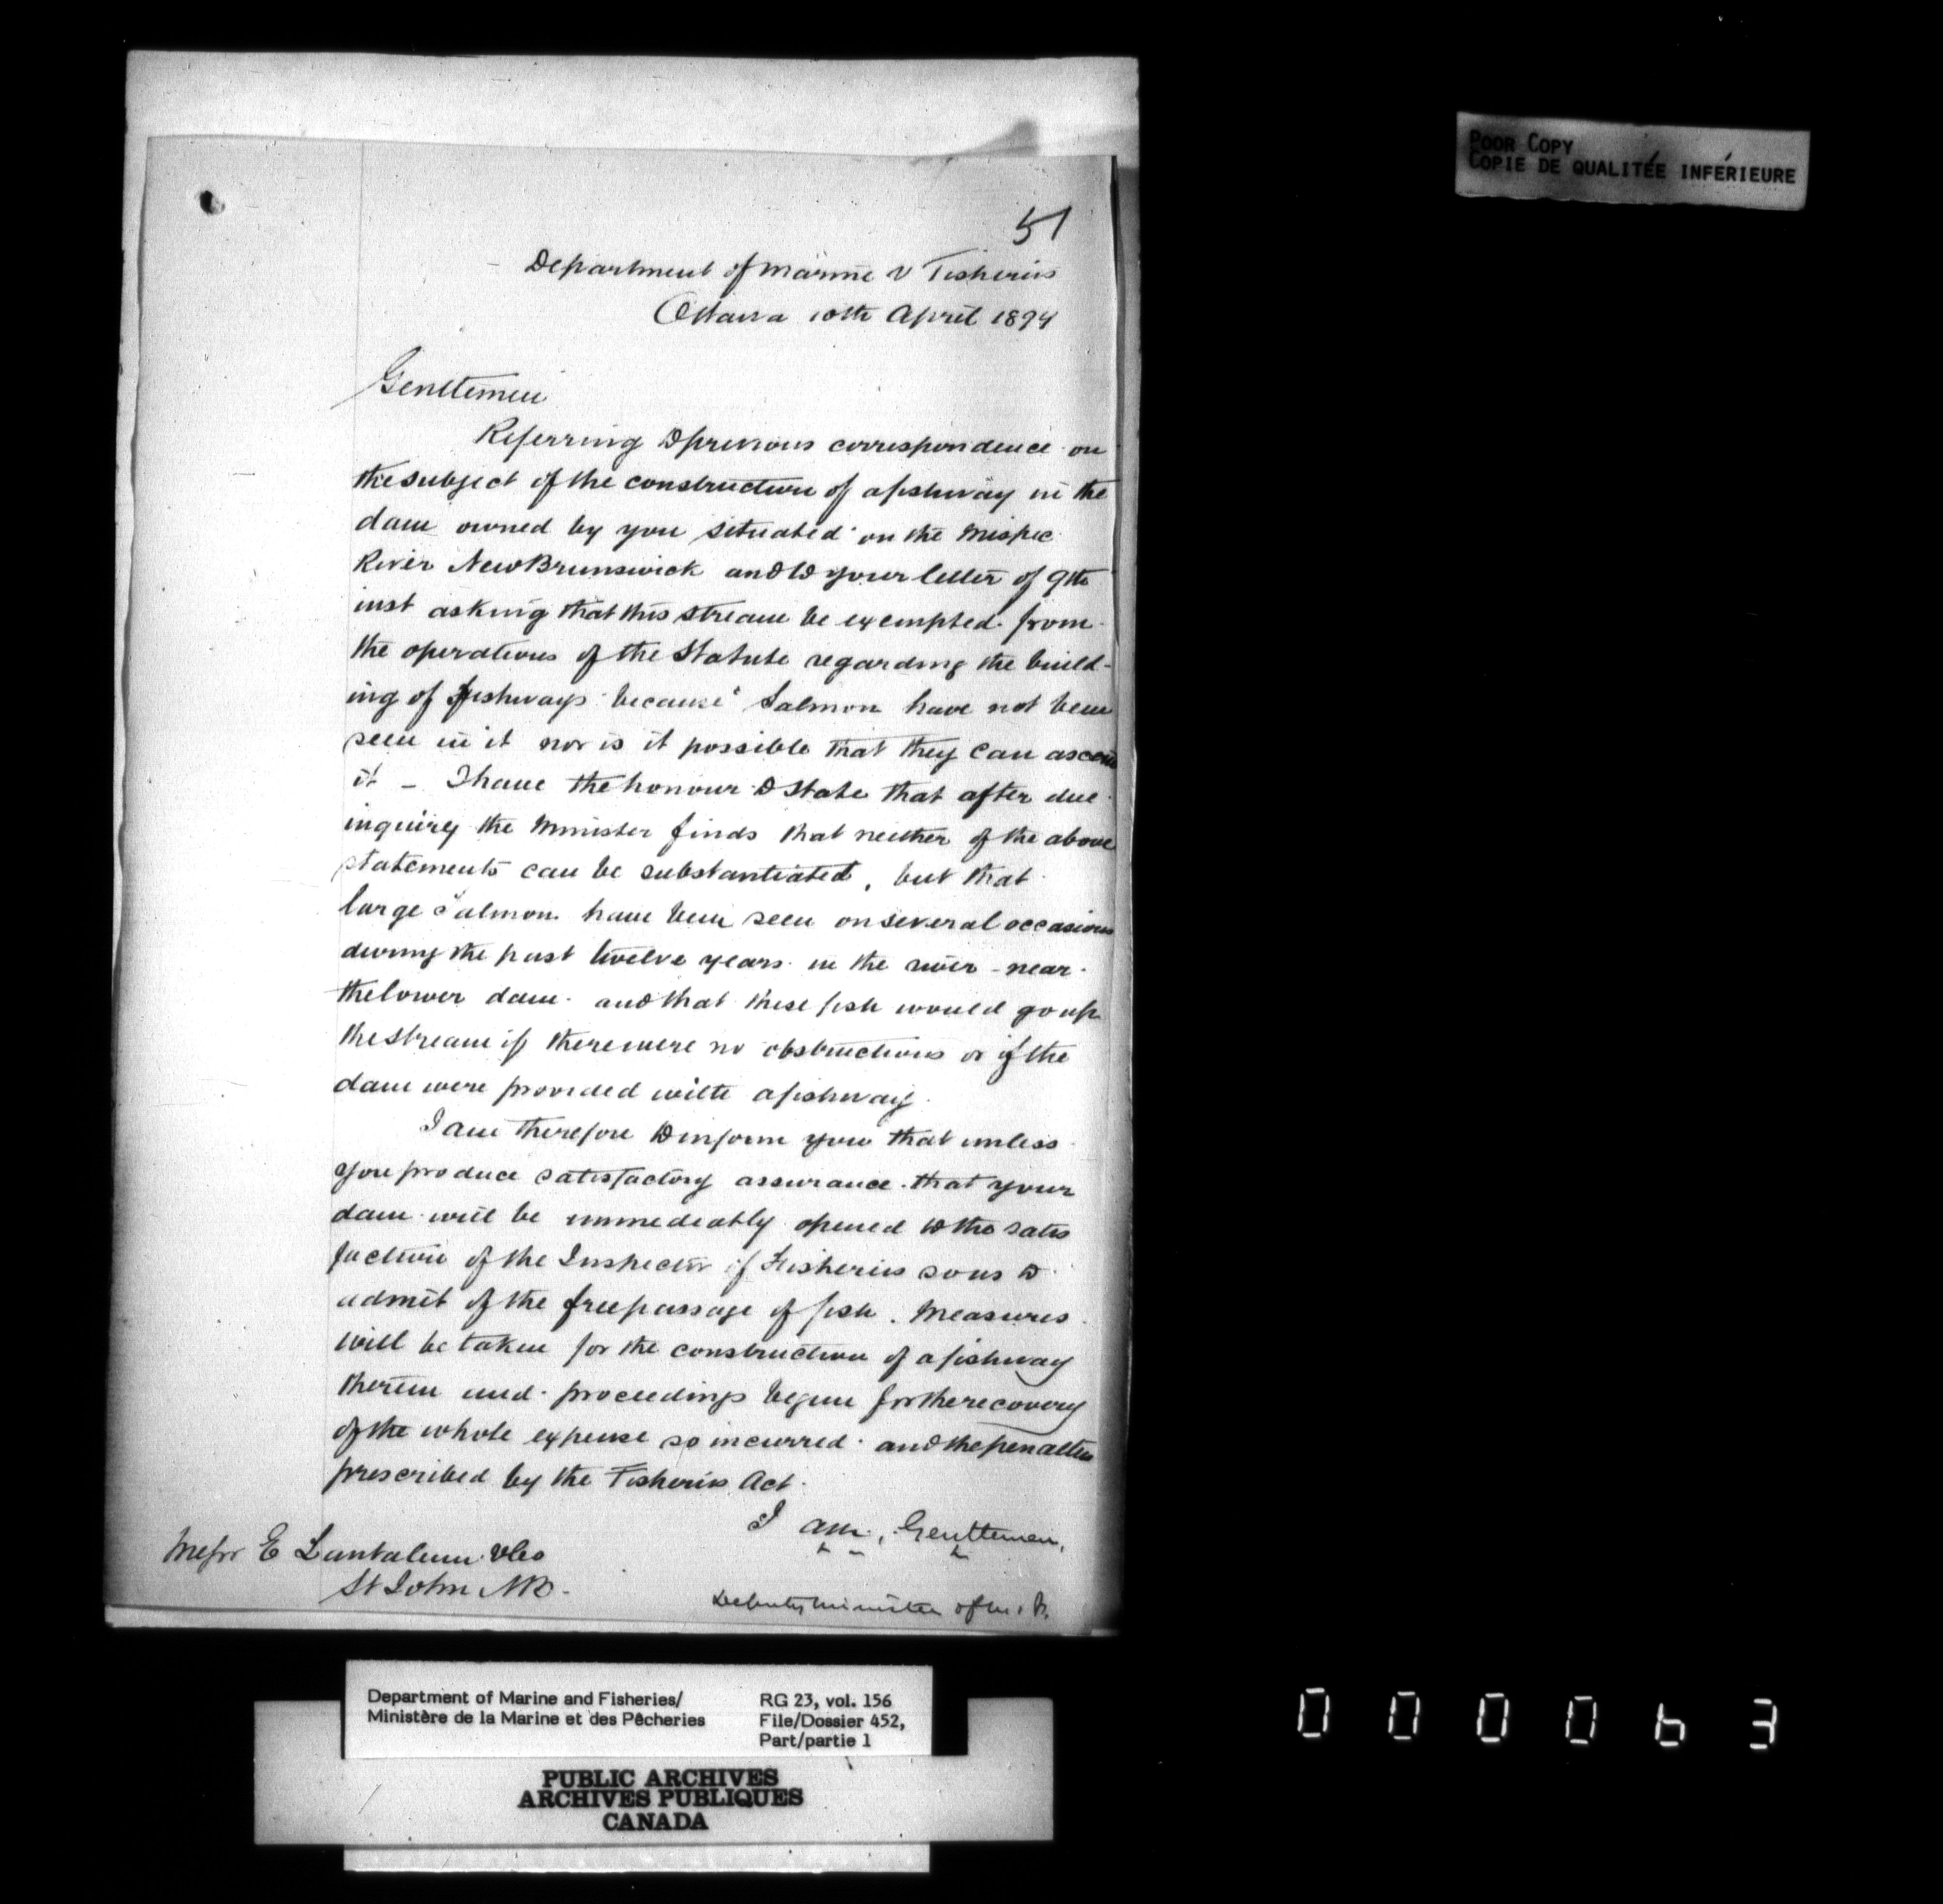 POOR COPY
COPIE DE QUALITÉE INFÉRIEURE
51
Department of Marine & Fisheries
Ottawa 10th April 1894
Gentlemen
Referring to previous correspondence on
the subject of the construction of a fishway in the
dam owned by you situated on the Mispec
River New Brunswick and to your letter of 9th
inst asking that this stream be exempted from
the operations of the Statute regarding the build-
ing of fishways because Salmon have not been
seen in it nor is it possible that they can ascend
it - I have the honour to state that after due
inquiry the Minister finds that neither of the above
statements can be substantiated, but that
large Salmon have been seen on several occasions
during the past twelve years in the river - near
the lower dam and that these fish would go up
the stream if there were no obstructions or if the
dam were provided with a fishway.
I am therefore to inform you that unless
you produce satisfactory assurance that your
dam will be immediately opened to the satis
faction of the Inspector of Fisheries so as to
admit of the free passage of fish. Measures
will be taken for the construction of a fishway
therein and proceedings begun for the recovery
of the whole expense so incurred and the penalties
prescribed by the Fisheries Act.
I am, Gentlemen,
Messr E Lantalum & Co
St John NB-
Deputy Minister of M. & F.
Department of Marine and Fisheries/
Ministère de la Marine et des Pêcheries
RG 23, vol. 156
File/Dossier 452,
Part/partie 1
PUBLIC ARCHIVES
ARCHIVES PUBLIQUES
CANADA
000063